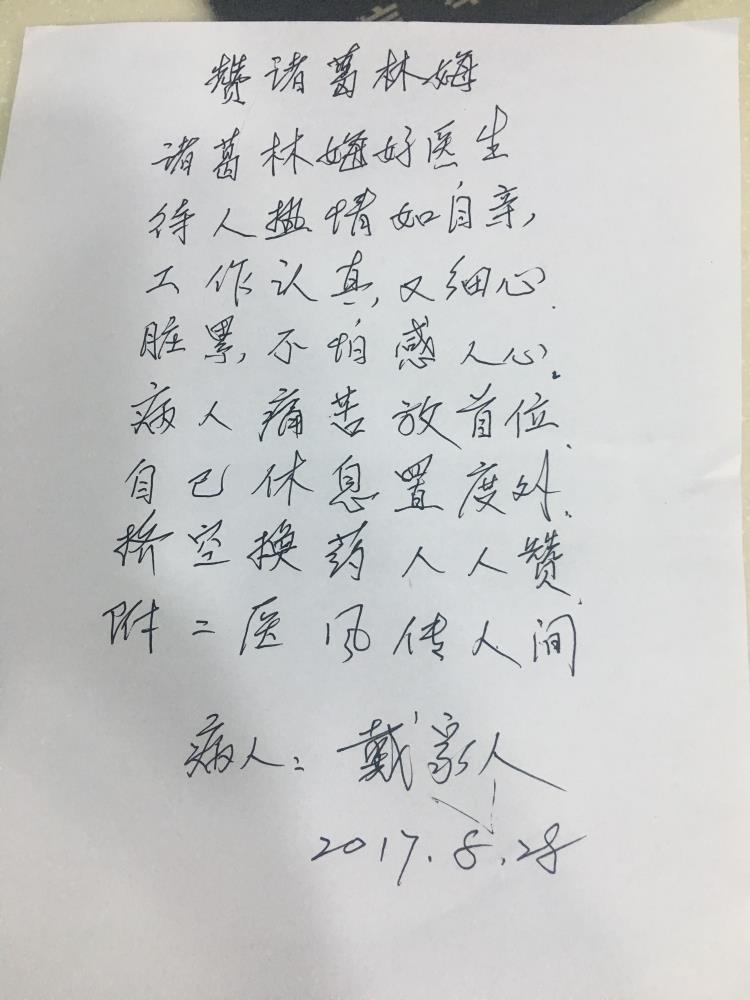 赞诸葛林海
诸葛林海好医生
待人热情如自亲,
工作认真,又细心.
脏累,不怕感人心.
病人痛苦放首位.
自已休息置度外.
挤空换药人人赞.
附二医风传人间
病人: 戴家人
2017.8.28